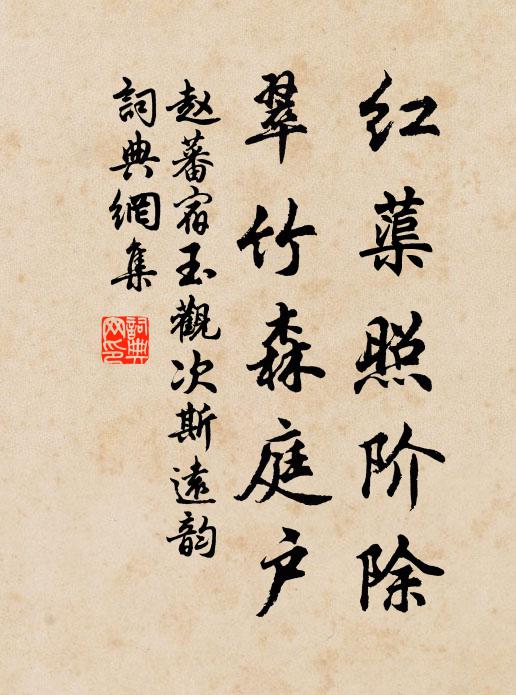 红蕖照阶除
翠竹森庭户
赵蕃宿玉觀次斯遠韵
詞典網集
詞典网印